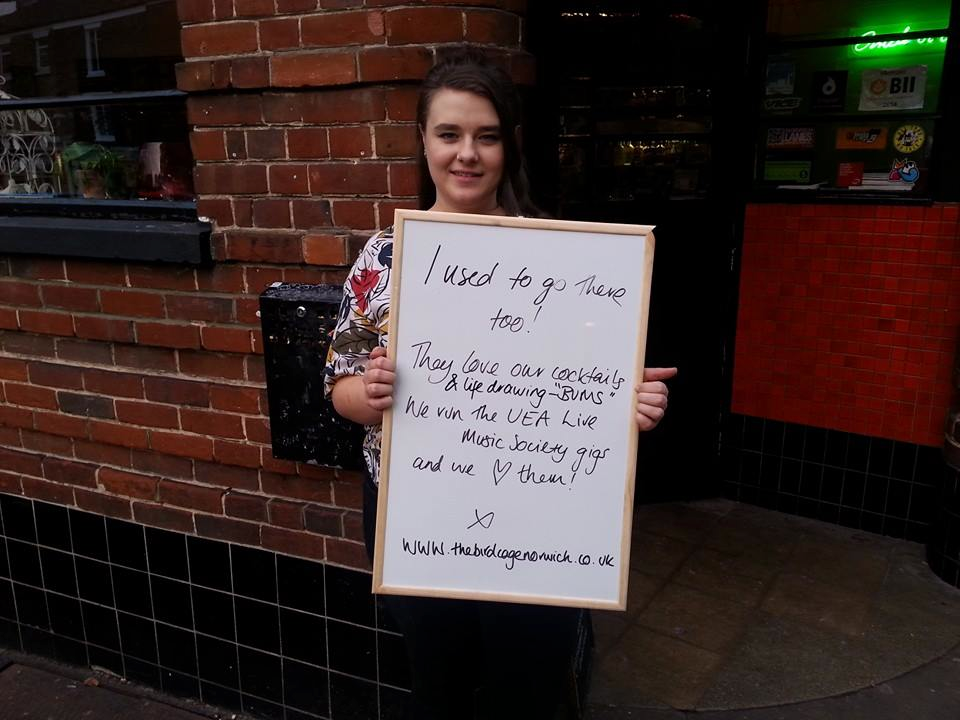 I used to go there
too!
They love our cocktails
& life drawing - "BUMS"
We run the UEA Live
Music Society gigs
and we ♡ them!
X
www.thebirdcagenorwich.co.uk
BII
VICE
LANES